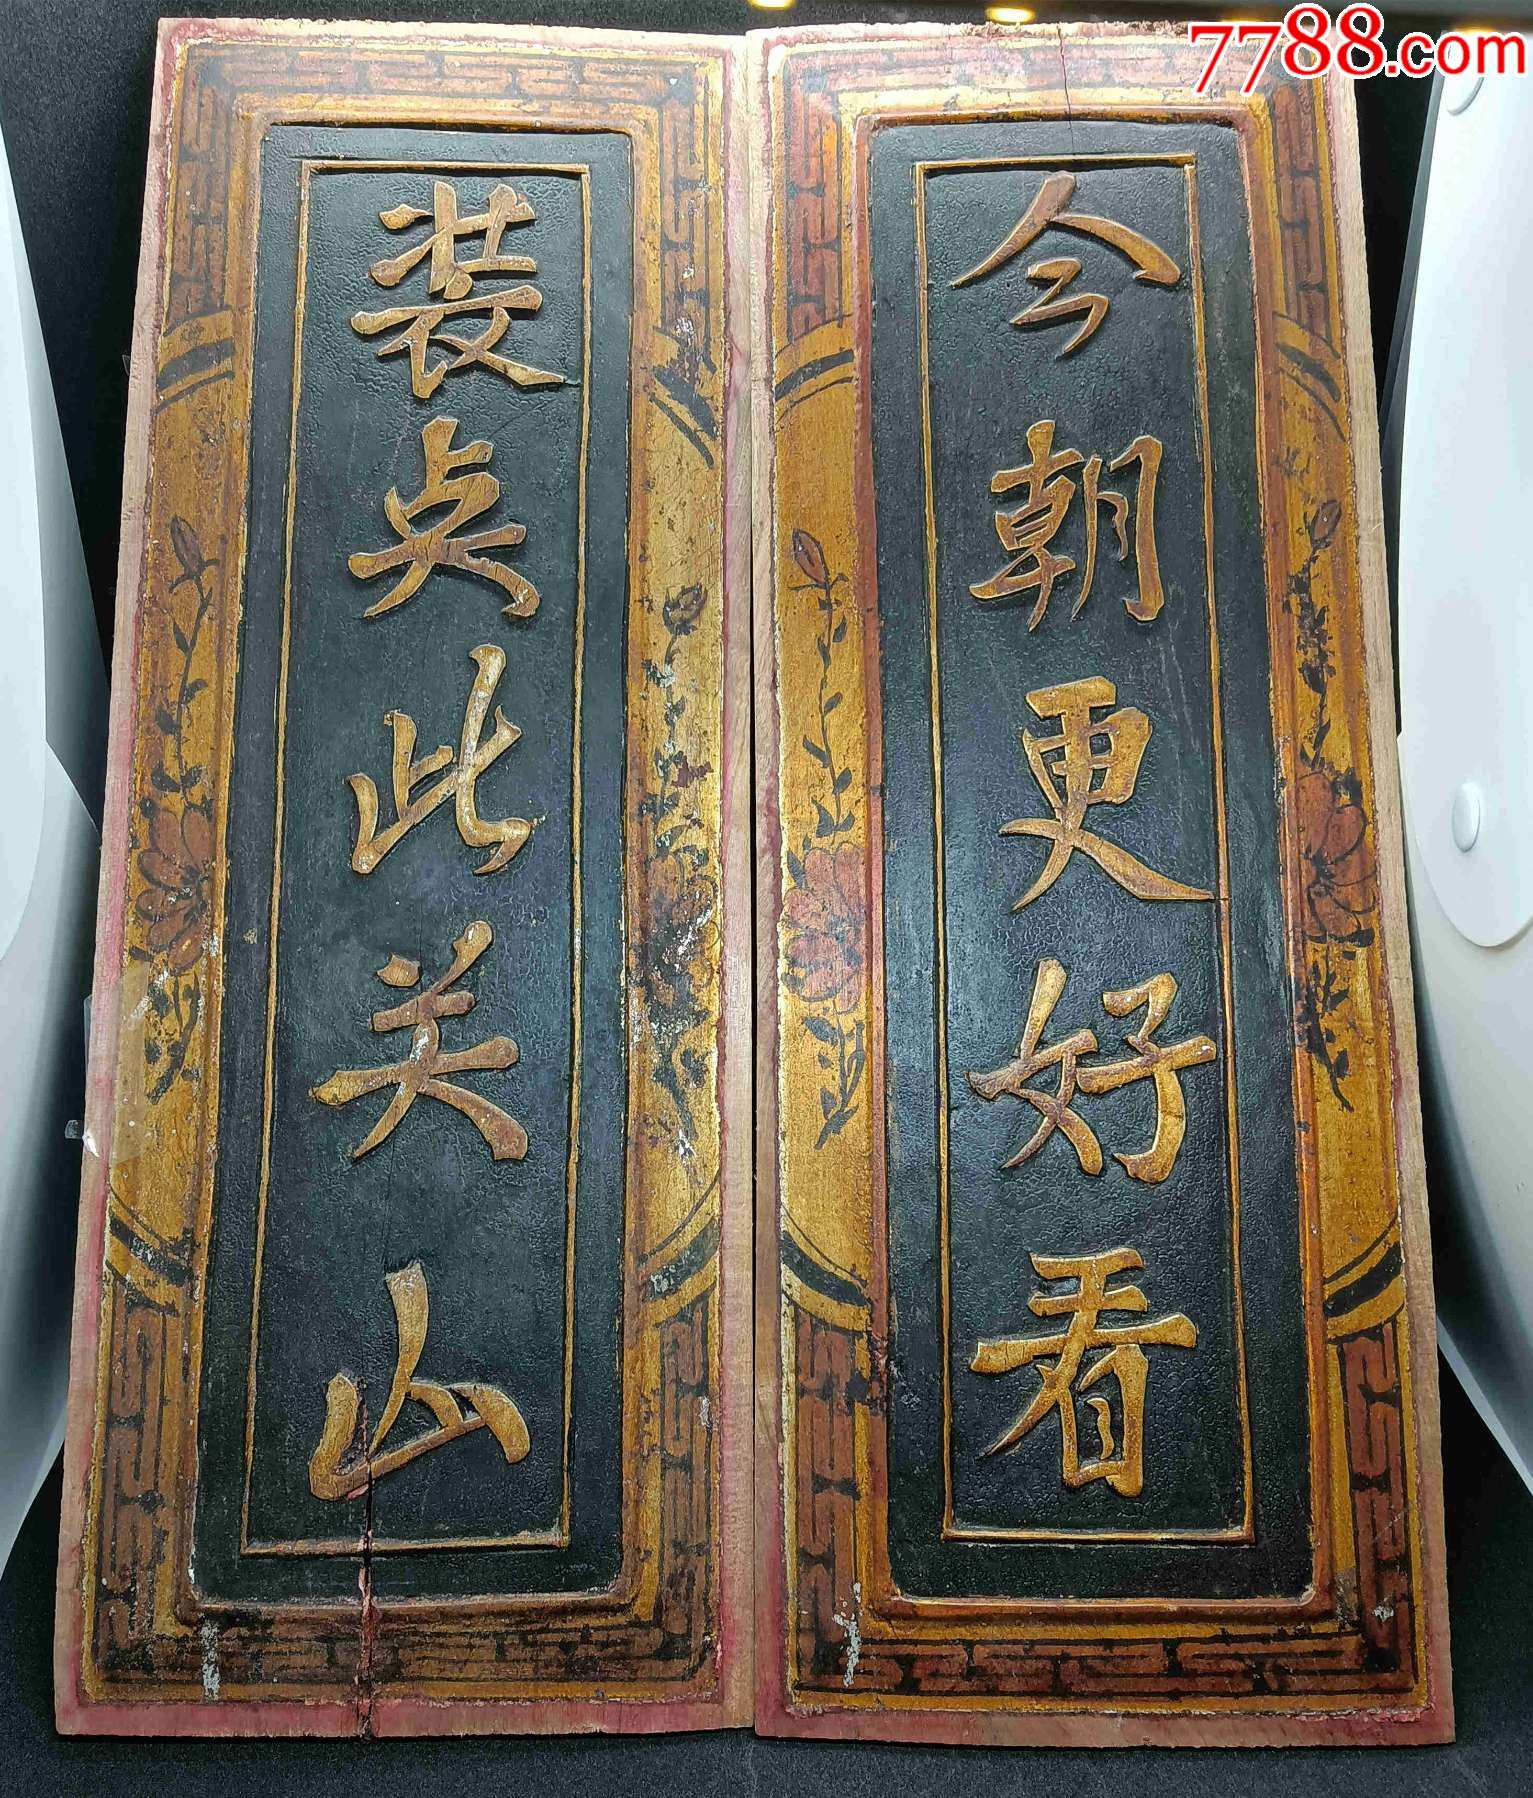 装点此关山
今朝更好看
7788.com